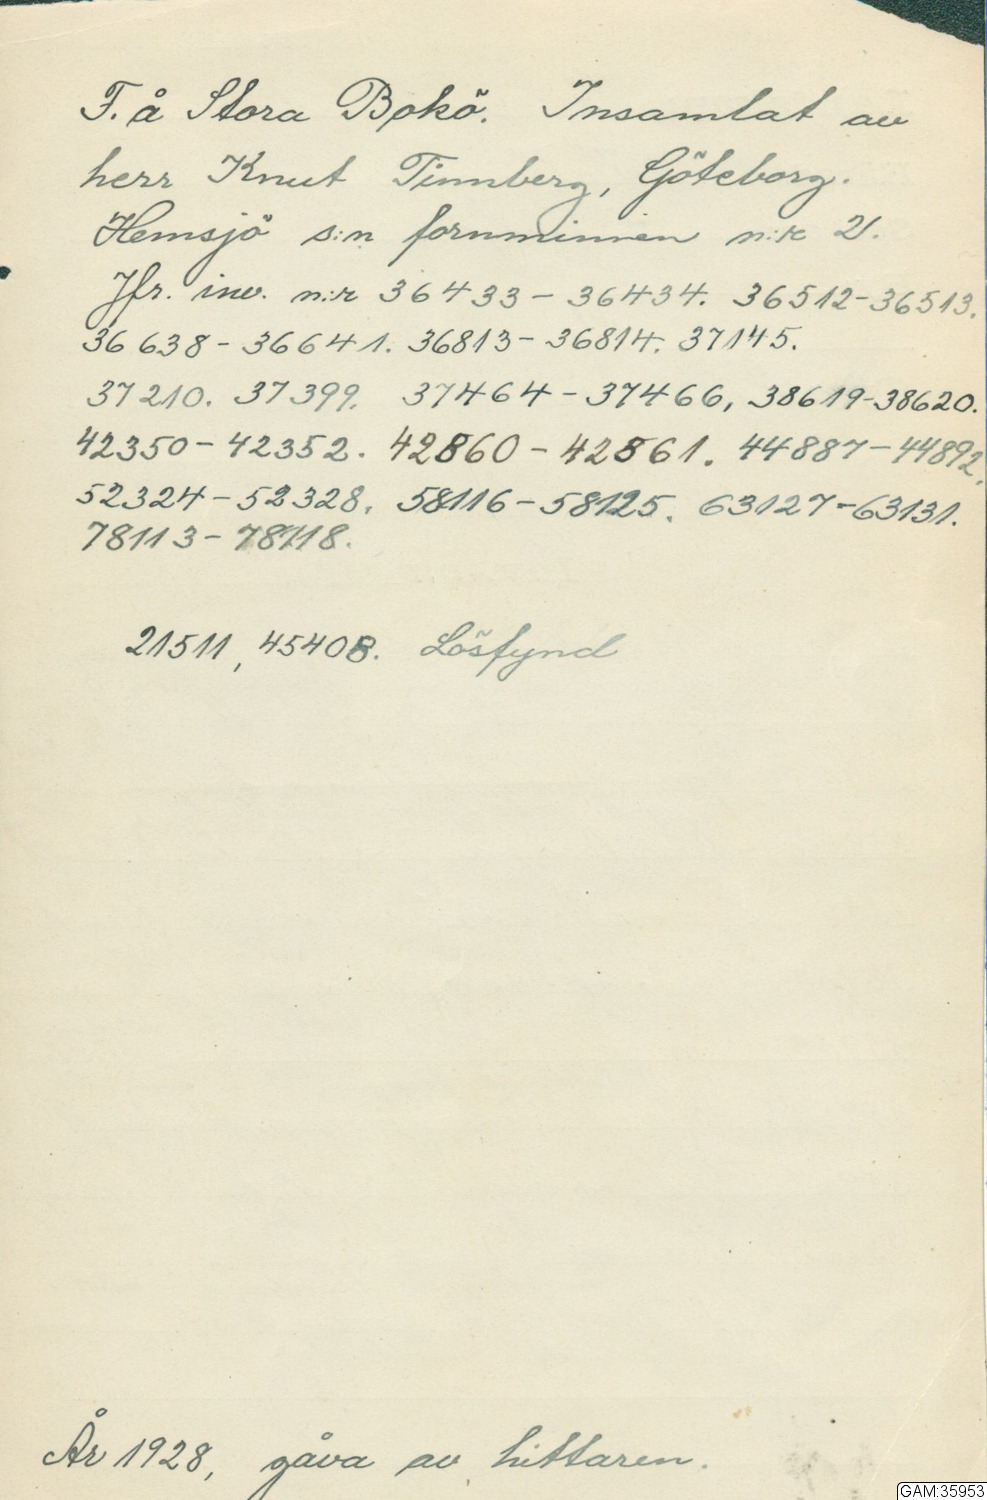 F. å Stora Bokö. Insamlat av
herr Knut Tinnberg, Göteborg.
Hemsjö s:n fornminnen n:r 2.
Jfr. inv. n:r 36433-36434. 36512-36513.
36638-36641. 36813-36814. 37145.
37210. 37399. 37464-37466, 38619-38620.
42350-42352. 42860-42861. 44887-44892,
52324-52328. 58116-58125. 63127-63131.
78113-78118.
21511, 45408. Lösfynd
År 1928, gåva av hittaren.
GAM:35953